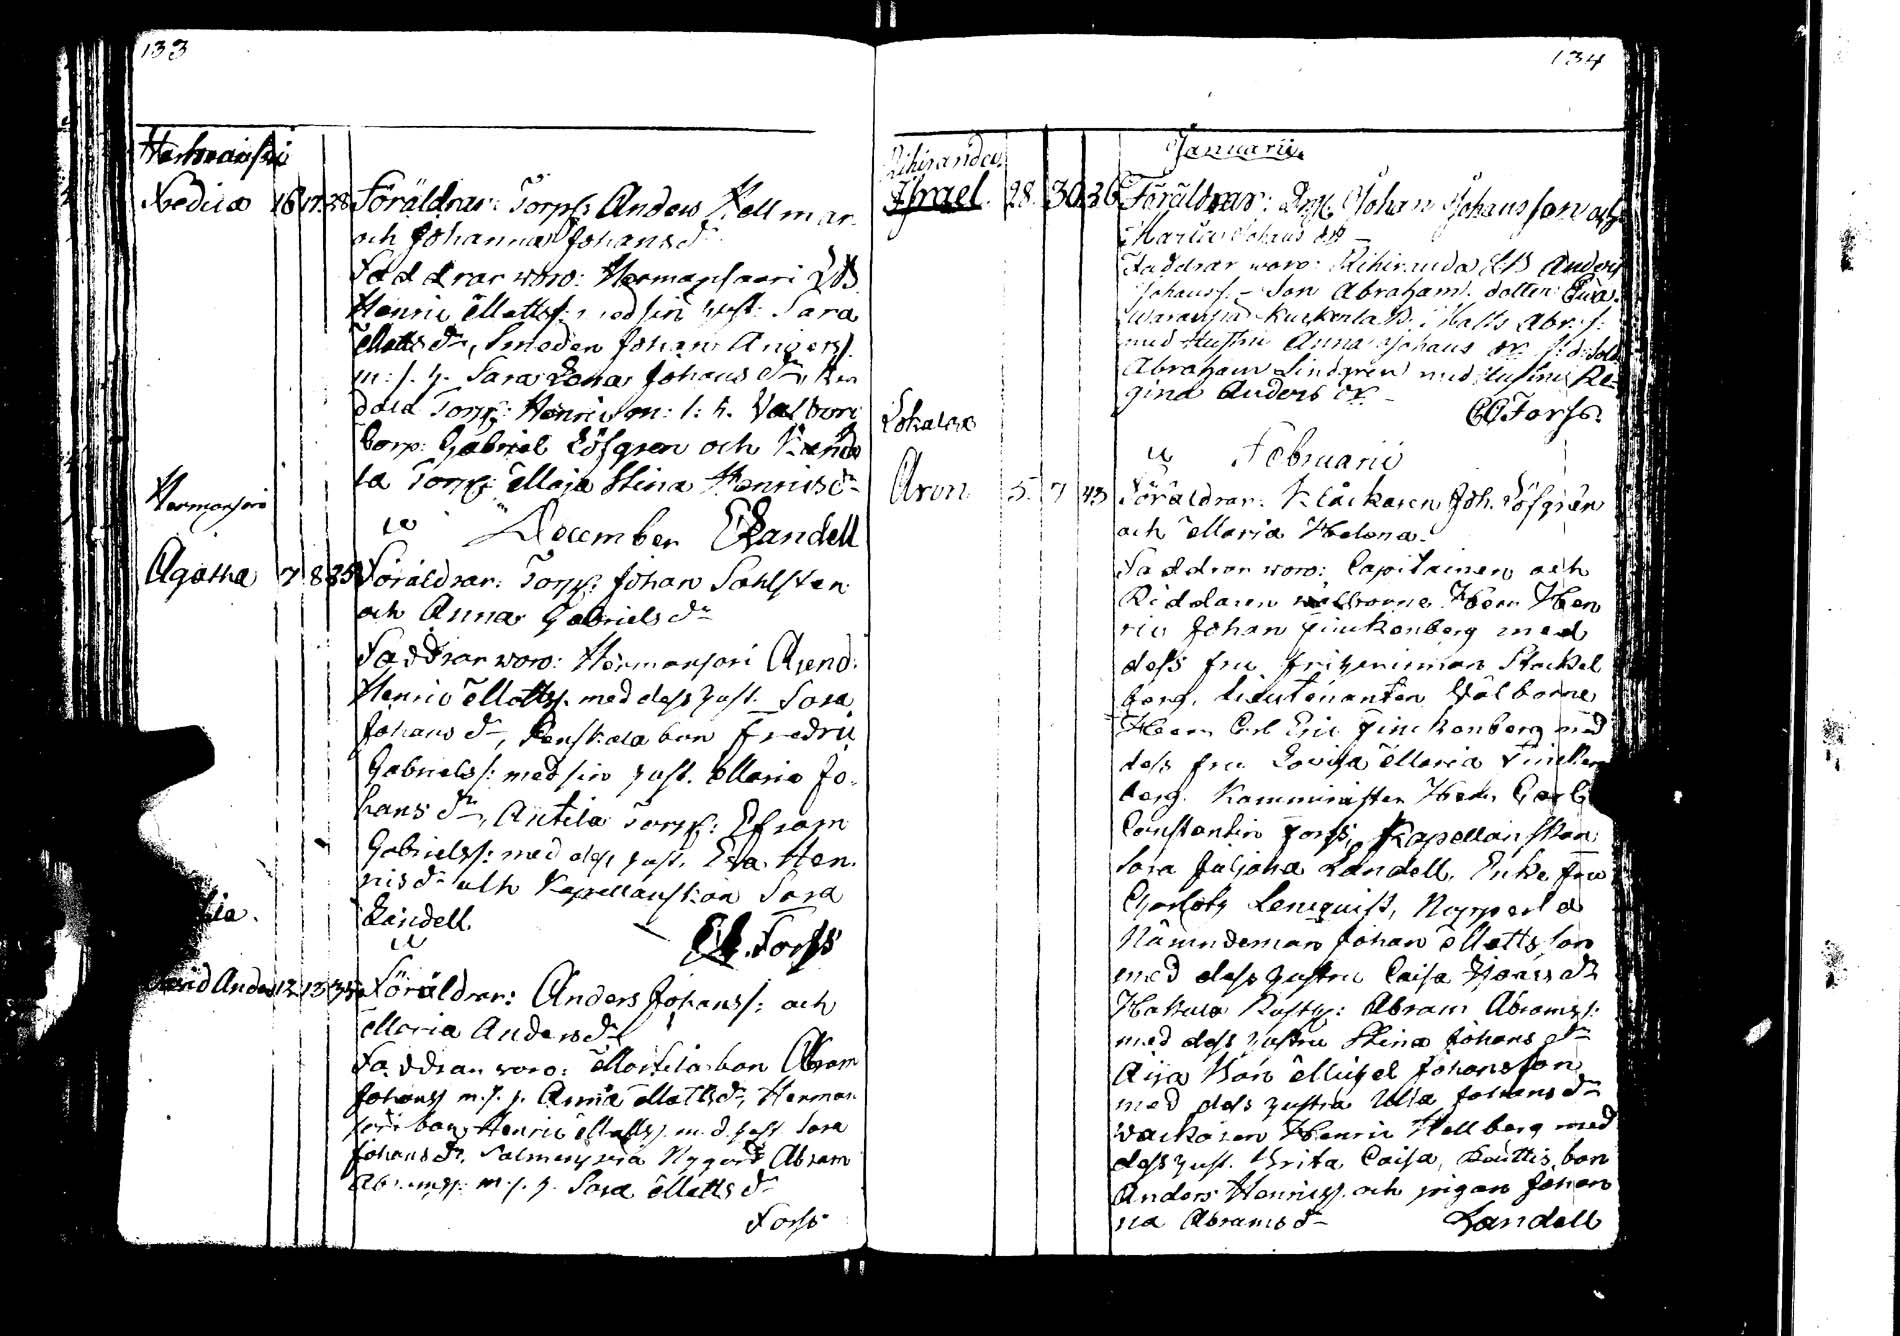 133
Hermansari
Fredica 16 17 28 Föräldrar: Torp: Anders Kellmar
och Johanna Johansdr
Faddrar woro: Hermansaari
Henric Matts: med sin hust: Sara
Mattsdr, Smeden Johan Anderss.
m: s. h. Sara Lena Johansdr,
Torp: Henric m: s: h. Valbori
Corp: Gabriel Löfgren och
la Torp: Maja Stina Henricsdr
Hermansari
December Landell
Agatha 7 8 35 Föräldrar: Torp: Johan Sahlsten
och Anna Gabrielsdr
Faddrar woro: Hermansari Arend:
Henric Matts. med dess hust. Sara
Johansdr, Penskala bon Fredric
Gabriels: med sin hust. Maria Jo-
hansdr, Antila Torp: Efraim
Gabrielss: med dess hust. Eva Hen-
ricsdr och Kapellanskan Sara
Landell
Forss
David Anders 12 13 35 Föräldrar: Anders Johanss: och
Maria Andersdr
Faddrar woro: Marttila bon Abram
Johanss m. s. h. Anna Mattsdr, Herman
sari bon Henric Matts. m. d. hust Sara
Johansdr, Nygård Abram
Abramss: m. s. h. Sara Mattsdr
Forss
134
Rihiranda Januarii
Israel 28 30 36 Föräldrar: Johan Johansson och
Maria Johansdr
Faddrar woro: Rihiranda Anders
Johanss. - Son Abraham. dotter Eva.
Matts Abr: s:
med Hustru Anna Johans dr.
Abraham Lindgren med Hustru Re-
gina Anders dr.
Lokalax Forss.
Februarii
Aron 5 7 43 Föräldrar: Klåckaren Joh. Löfgren
och Maria Helena.
Faddrar woro: Capitainen och
Riddaren wälborne Herr Hen
ric Johan Finckenberg med
dess fru friherinnan Stackel
berg, Lieutenanten Välborne
Herr Carl Eric Finckenberg med
dess fru Lovisa Maria Fincken
berg. Kamministern Herr Carl
Constantin Forss, Kapellanskan
Sara Juliana Landell, Enke fru
Charlott Lenquist,
Nämndeman Johan Matts son
med dess hustru Caisa Jonas dr
Abram Abramss:
med dess hustru Stina Johans dr
Bon Michel Johansson
med dess hustru Ulla Johansdr
Henric Hellberg med
dess hust. Brita Caisa, bon
Anders Henricss. och pigan Johan
na Abramsdr Landell